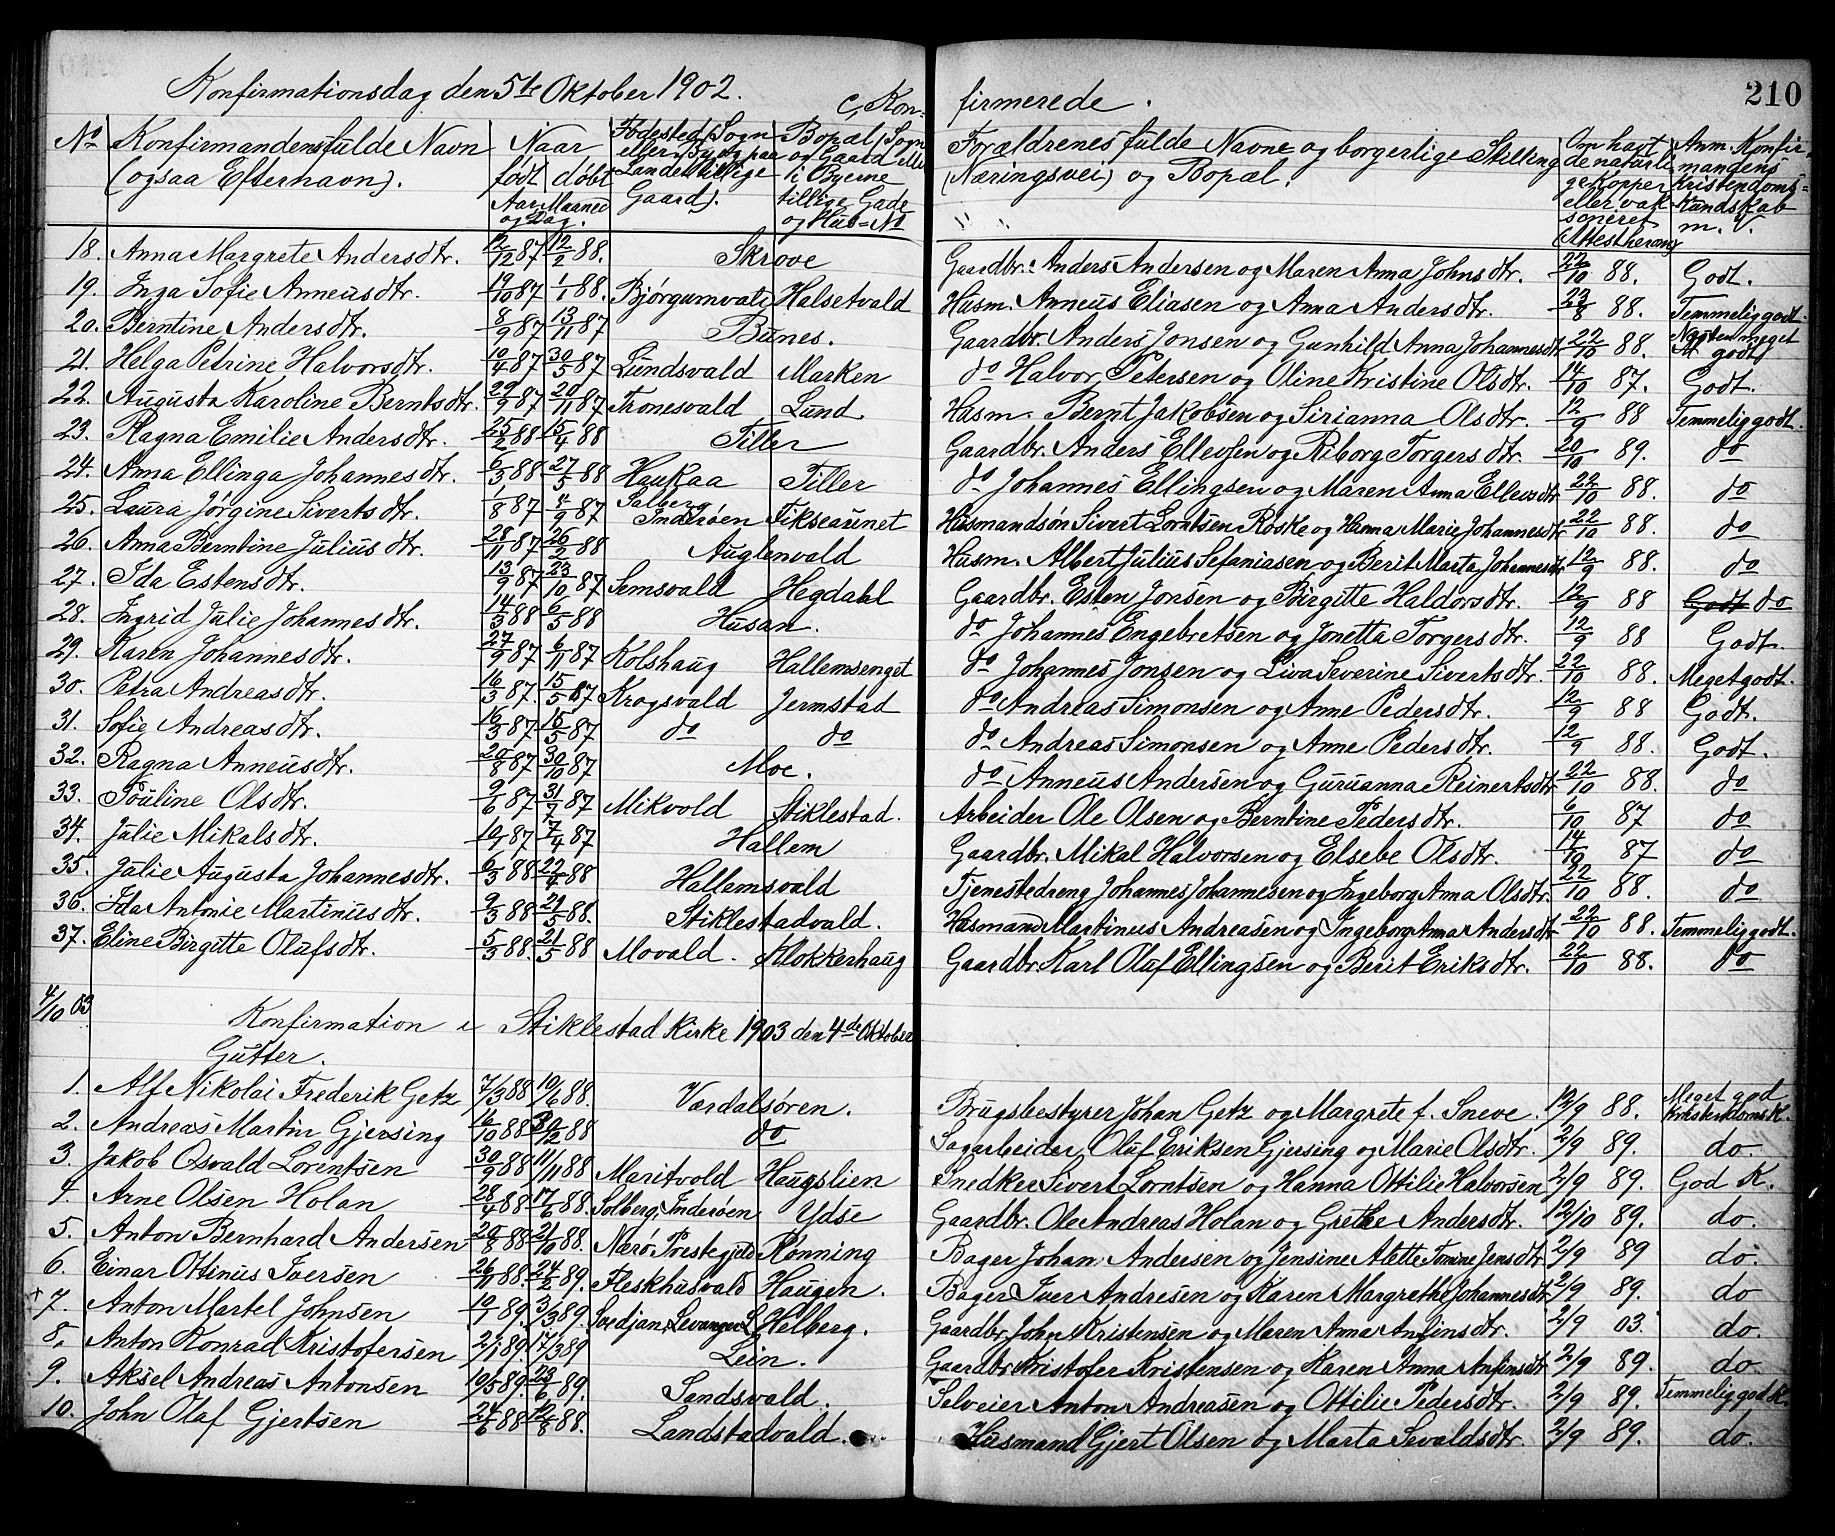 Konfirmationsdag den 5te Oktober 1902. C, Kon- firmerede. 210
No Konfirmandens fulde Navn (ogsaa Efternavn). Naar født døbt Aar Maaned og Dag. Fødested (Sogn eller By og paa Landet tillige Gaard). Bopæl (Sogn og Gaard i Byerne tillige Gade og Hus-No Forældrenes fulde Navne og borgerlige Stilling (Næringsvei) og Bopæl. Om havt de naturlige Kopper eller vaksineret (Attesthaver) Anm. Konfirmandens Kristendoms-Kundskab m. v.
18. Anna Margrete Andersdtr. 12/12 87 12/2 88. Skrove Gaardbr. Anders Andersen og Maren Anna Johnsdtr. 22/10 88. Godt.
19. Inga Sofie Anneusdtr. 19/10 87 1/1 88. Bjørgumvald Halsetvald Husm. Anneus Eliasen og Anna Andersdtr. 23/8 88. Temmelig godt.
20. Berntine Andersdtr. 8/9 87 13/11 87 Bunes. Gaardbr. Anders Jonsen og Gunhild Anna Johannesdtr 22/10 88. Næsten meget godt
21. Helga Petrine Halvorsdtr. 10/4 87 30/5 87 Lundsvald Marken do Halvor Petersen og Oline Kristine Olsdtr. 14/10 87. Godt.
22. Augusta Karoline Berntsdtr. 29/9 87 20/11 87 Tronesvald Lund Husm. Bernt Jakobsen og Sirianna Olsdtr. 12/9 88 Temmelig godt.
23. Ragna Emilie Andersdtr. 25/2 88 15/4 88 Tiller Gaardbr. Anders Ellevsen og Riborg Torgersdtr. 20/10 89. do
24. Anna Ellinga Johannesdtr. 6/3 88 27/5 88 Haukaa Tiller do Johannes Ellingsen og Maren Anna Ellevsdtr 22/10 88. do
25. Laura Jørgine Sivertsdtr. 1/8 87 4/9 87 Salberg Inderøen Fikseaunet Husmandsøn Sivert Lorntsen Røske og Hanna Marie Johannesdtr 22/10 88. do
26. Anna Berntine Juliusdtr. 28/11 87 26/2 88 Auglenvald Husm. Albert Julius Sefaniasen og Berit Marta Johannesdtr 12/9 88. do
27. Ida Estensdtr. 13/9 87 23/10 87 Semsvald Hegdahl Gaardbr. Esten Jonsen og Birgitte Haldorsdtr. 12/9 88 Godt do
28. Ingrid Julie Johannesdtr. 14/3 88 6/5 88 Husan. do Johannes Engebretsen og Jonetta Torgersdtr. 12/9 88 Godt.
29. Karen Johannesdtr. 27/9 87 6/11 87 Kolshaug Hallemsenget do Johannes Jonsen og Liva Severine Sivertsdtr. 22/10 88. Meget godt.
30. Petra Andreasdtr. 16/3 87. 15/5 87 Krogsvald Jermstad do Andreas Simonsen og Anne Pedersdtr. 12/9 88 Godt.
31. Sofie Andreasdtr. 16/3 87 15/5 87 do do do Andreas Simonsen og Anne Pedersdtr. 12/9 88. Godt.
32. Ragna Anneusdtr. 20/8 87 30/10 87 Moe. do Anneus Andersen og Guruanna Reinertsdtr 22/10 88. do
33. Pouline Olsdtr. 9/6 87 31/7 87 Mikvold Stiklestad. Arbeider Ole Olsen og Berntine Pedersdtr. 6/10 87 do
34. Julie Mikalsdtr. 10/1 87 7/4 87 Hallem Gaardbr. Mikal Halvorsen og Elsebe Olsdtr. 14/10 87 do
35. Julie Augusta Johannesdtr. 6/3 88 22/4 88 Hallemsvald Tjenestedreng Johannes Johannesen og Ingeborg Anna Olsdtr. 22/10 88. do
36. Ida Antonie Martinusdtr. 9/3 88 21/5 88. Stiklestadvald. Husmand Martinus Andreasen og Ingeborg Anna Andersdtr 22/10 88. Temmelig godt.
37. Eline Birgitte Olufsdtr. 5/3 88. 21/5 88 Movald. Klokkerhaug Gaardbr. Karl Oluf Ellingsen og Berit Eriksdtr. 22/10 88. do
4/10 03 Konfirmation i Stiklestad Kirke 1903 den 4de Oktober
Gutter.
1. Alf Nikolai Frederik Getz 7/3 88 10/6 88. Værdalsøren. Brugsbestyrer Johan Getz og Margrete f. Sneve. 12/9 88. Meget god Kristendoms K.
2. Andreas Martin Gjersing 16/10 88 30/12 88 do Sagarbeider Oluf Eriksen Gjersing og Marie Olsdtr. 2/9 89. do.
3. Jakob Osvald Lorentsen 30/9 88 11/11 88 Maritvold Haugslien Snedker Sivert Lorntsen og Hanna Ottilie Halvorsen 2/9 89. God K.
4. Arne Olsen Holan 28/4 88 17/6 88. Solberg, Inderøen Ydse Gaardbr. Ole Andreas Holan og Grethe Andersdtr. 12/10 89. do.
5. Anton Bernhard Andersen 20/8 88 21/10 88. Nærø Prestegjeld Rønning Bager Johan Andersen og Jensine Alette Tomine Jensdtr 2/9 89 do.
6. Einar Ottinus Iversen 26/11 88. 24/2 89. Fleskhusvald Haugen. Bager Iver Andresen og Karen Margrethe Johannesdtr 2/9 89. do
+ 7. Anton Martel Johnsen 19/1 89. 3/3 89. Svedjan, Levanger L Helberg. Gaardbr. John Kristensen og Maren Anna Anfinsdtr. 2/9 03. do.
8. Anton Konrad Kristofersen 21/1 89. 17/3 89 Lein. Gaardbr. Kristofer Kristensen og Karen Anna Anfinsdtr 2/9 89. do
9. Aksel Andreas Antonsen 10/5 89. 23/6 89. Sandsvald. Selveier Anton Andreasen og Ottilie Pedersdtr. 2/9 89. Temmelig god K.
10. John Olaf Gjertsen 24/6 88 12/8 88. Landstadvald. Husmand Gjert Olsen og Marta Sevaldsdtr. 2/9 89. do.